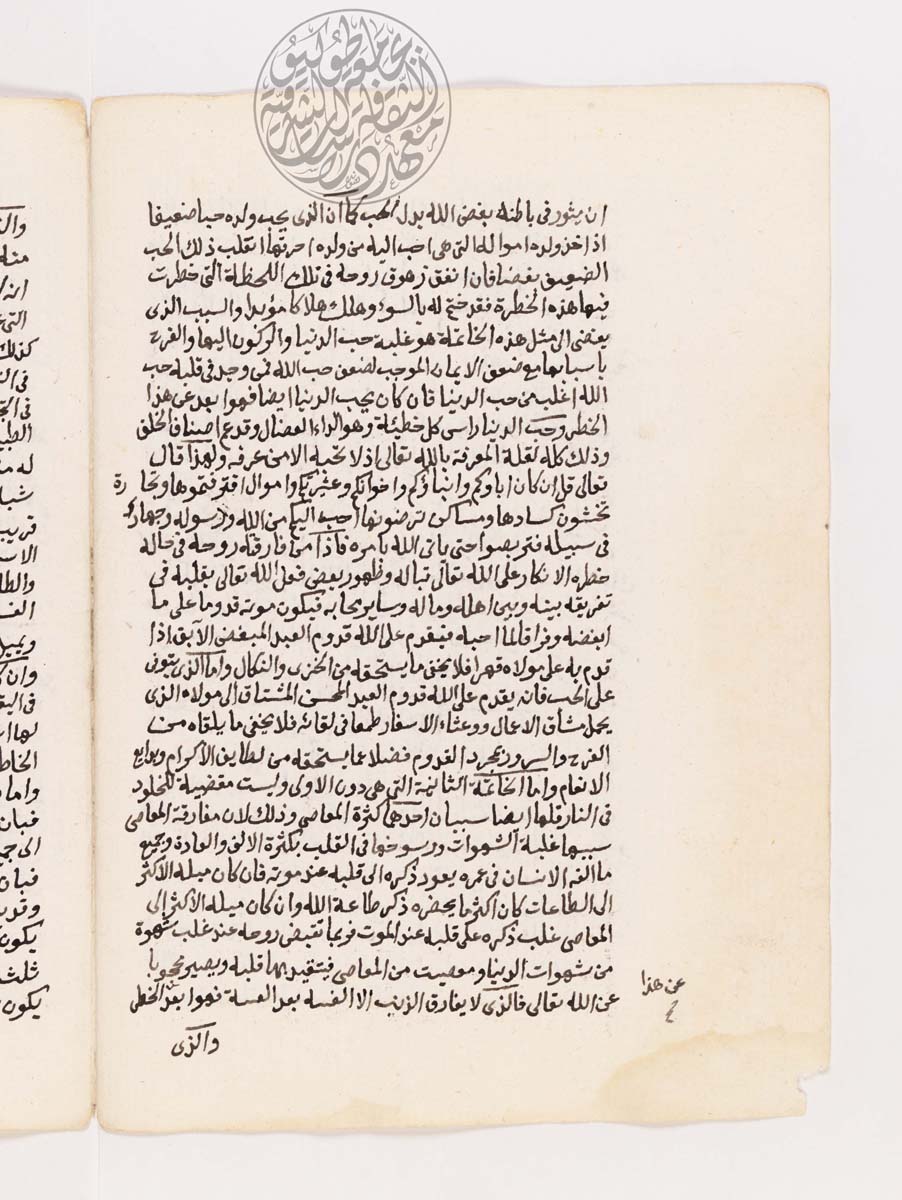 ان يثور في باطنه بغض الله بدل الحب كما ان الذي يحب ولده حبا ضعيفا
اذا اخذ ولده امواله التي هي احب اليه من ولده احرقها انقلب ذلك الحب
الضعيف بغضا فان اتفق زهوق روحه في تلك اللحظة التي خطرت
فيها هذه الخطرة فقد ختم له بالسوء وهلك هلاكا مؤبدا والسبب الذي
يفضي الى مثل هذه الخاتمة هو غلبة حب الدنيا والركون اليها والفرح
باسبابها مع ضعف الايمان الموجب لضعف حب الله فمن وجد في قلبه حب
الله اغلب من حب الدنيا فان كان يحب الدنيا ايضا فهو ابعد عن هذا
الخطر وحب الدنيا راس كل خطيئة وهو الداء العضال وقد عم اصناف الخلق
وذلك كله لقلة المعرفة بالله تعالى اذ لا يحبه الا من عرفه ولهذا قال
تعالى قل ان كان اباؤكم وابناؤكم واخوانكم وعشيرتكم واموال اقترفتموها وتجارة
تخشون كسادها ومساكن ترضونها احب اليكم من الله ورسوله وجهاد
في سبيله فتربصوا حتى ياتي الله بامره فاذا من فارقته روحه في حالة
خطره الانكار على الله تعالى بباله وظهور بغض فعل الله تعالى بقلبه في
تفريقه بينه وبين اهله وماله وساير محابه فيكون موته قدوما على ما
ابغضه وفراقا لما احبه فيقدم على الله قدوم العبد المبغض الآبق اذا
قدم به على مولاه قهرا فلا يخفى ما يستحقه من الخزى والنكال واما الذي يتوفى
على الحب فانه يقدم على الله قدوم العبد المحسن المشتاق الى مولاه الذي
يحمل مشاق الاعمال ووعثاء الاسفار طمعا في لقائه فلا يخفى ما يلقاه من
الفرح والسرور بمجرد القدوم فضلا عما يستحقه من لطايف الاكرام وبدايع
الانعام واما الخاتمة الثانية التي هي دون الاولى وليست مقضية للخلود
في النار فلها ايضا سببان احدهما كثرة المعاصي وذلك لان مفارقة المعاصي
سببها غلبة الشهوات ورسوخها في القلب بكثرة الالف والعادة وجميع
ما الفه الانسان في عمره يعود ذكره الى قلبه عند موته فان كان ميله الاكثر
الى الطاعات كان اكثر ما يحضره ذكر طاعة الله وان كان ميله الاكثر الى
المعاصي غلب ذكره على قلبه عند الموت فربما تقبض روحه عند غلب شهوة
من شهوات الدنيا ومعصيت من المعاصي فيتقيد بها قلبه ويصير محجوبا
عن الله تعالى فالذي لا يقارف الذنب الا الفينة بعد الفينة فهو ابعد الخطر
عن هذا
والذي